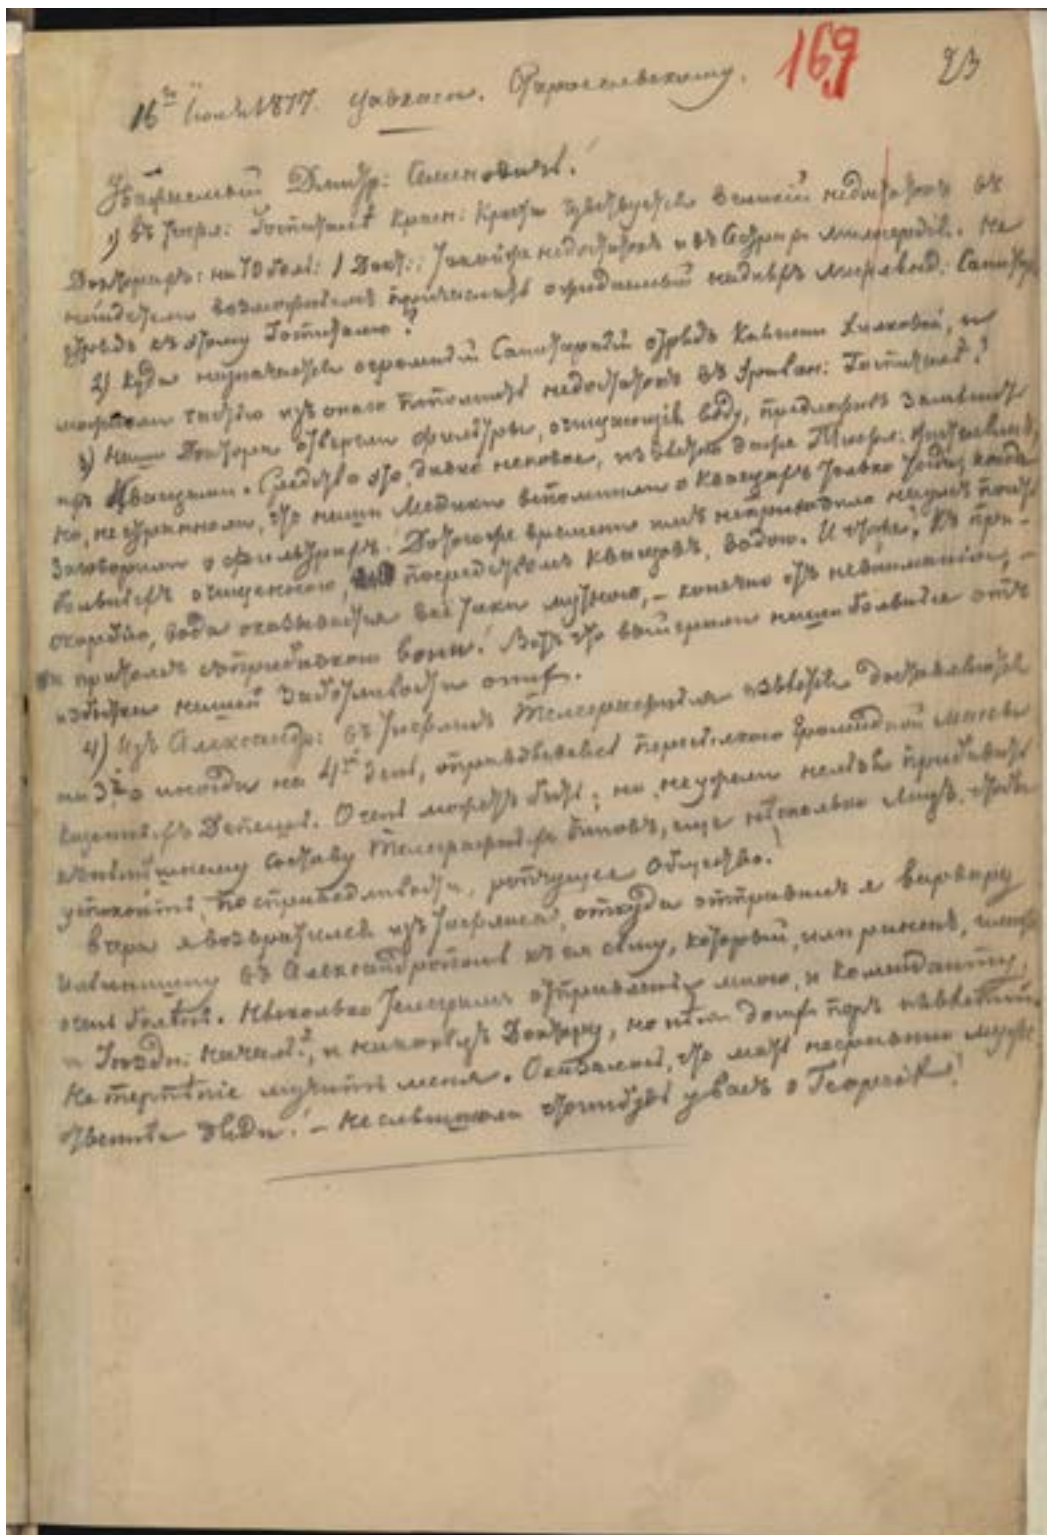 169
23
16го Іюня 1877. Старосельскому.
Уважаемый Дмитр: Семеновичъ!
1) Въ Тифл: Госпиталѣ Красн: Креста чувствуется великій недостатокъ въ
Докторахъ: на 70 бол: 1 Докт:; такой же недостатокъ и въ Сестрахъ милосердія. Не
найдете ли возможнымъ причислить ожидаемый Санитар:
отрядъ къ этому Госпиталю?
2) Куда назначается огромный Санитарный отрядъ, и
можно ли частію изъ онаго пополнить недостатокъ въ Эриван: Госпиталѣ?
3) Наши Доктора отвергли фильтры, очищающіе воду, предложивъ замѣнить
ихъ Квасцами. Средство это, давно не новое, извѣстно даже
но, не странно ли, что наши Медики вспомнили о Квасцахъ только тогда, когда
заговорили о фильтрахъ. До того же времени имъ не приходило на умъ поить
больныхъ очищенною, посредствомъ квасцовъ, водою. И что же? Къ при-
скорбію, вода оказывается всё таки мутною, – конечно отъ невниманія, –
и притомъ съ прибавкою вони! Вотъ что выиграли наши больные отъ
избытка нашей заботливости о нихъ.
4) Изъ Александр: въ Тифлисъ Телеграфныя извѣстія доставляются
на 3й а иногда на 4й день, оправдываясь пересылкою громадной массы
казенныхъ Депешъ. Очень можетъ быть; но, неужели нельзя прибавить
къ нынѣшнему составу Телеграфныхъ Чиновъ, еще нѣсколько лицъ, чтобы
успокоить, по справедливости, ропчущее Общество!
Вчера я возвратился изъ Тифлиса, откуда отправилъ я Варвару
въ Александрополь къ ея сыну, который, или раненъ, или
очень боленъ. Нѣсколько Телеграммъ отправлены мною, и Коменданту,
и Уѣздн: Начал:, и Доктору, но нѣтъ до сихъ поръ извѣстій.
Нетерпѣніе мучитъ меня. Оказалось, что мать
! – Не слышно ли чего нибудь у васъ о Георгіѣ!